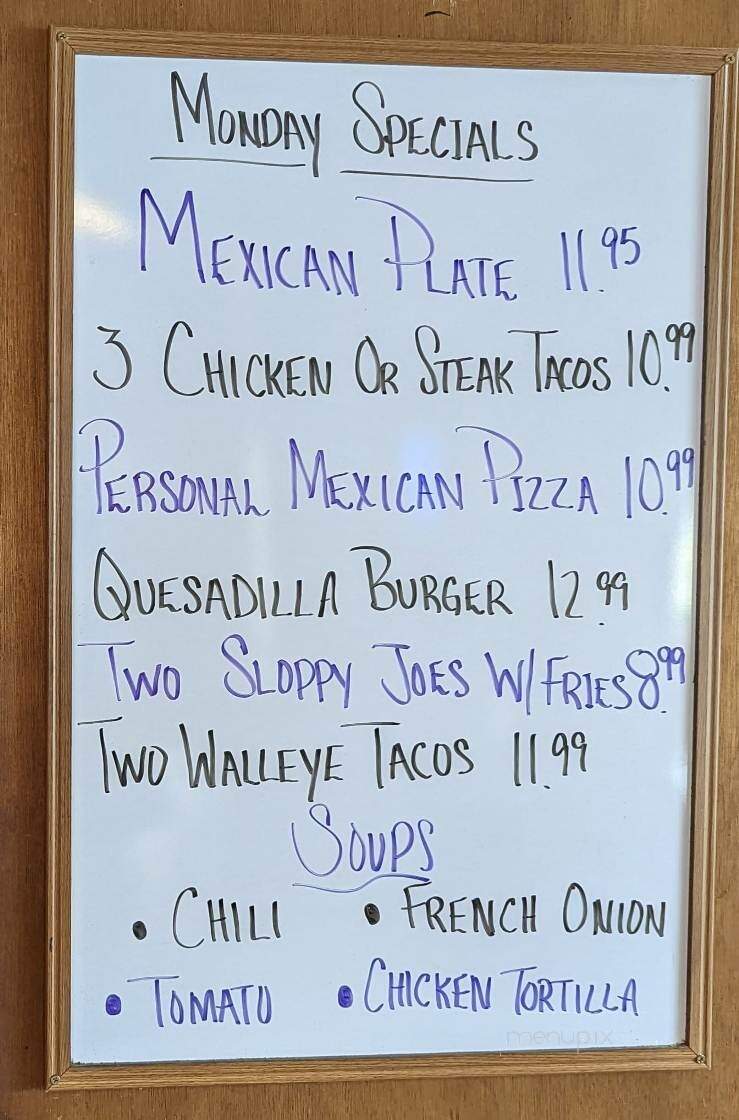 MONDAY SPECIALS
MEXICAN PLATE 11.95
3 CHICKEN OR STEAK TACOS 10.99
PERSONAL MEXICAN PIZZA 10.99
QUESADILLA BURGER 12.99
TWO SLOPPY JOES W/FRIES 8.99
TWO WALLEYE TACOS 11.99
SOUPS
• CHILI • FRENCH ONION
• TOMATO • CHICKEN TORTILLA
menupix